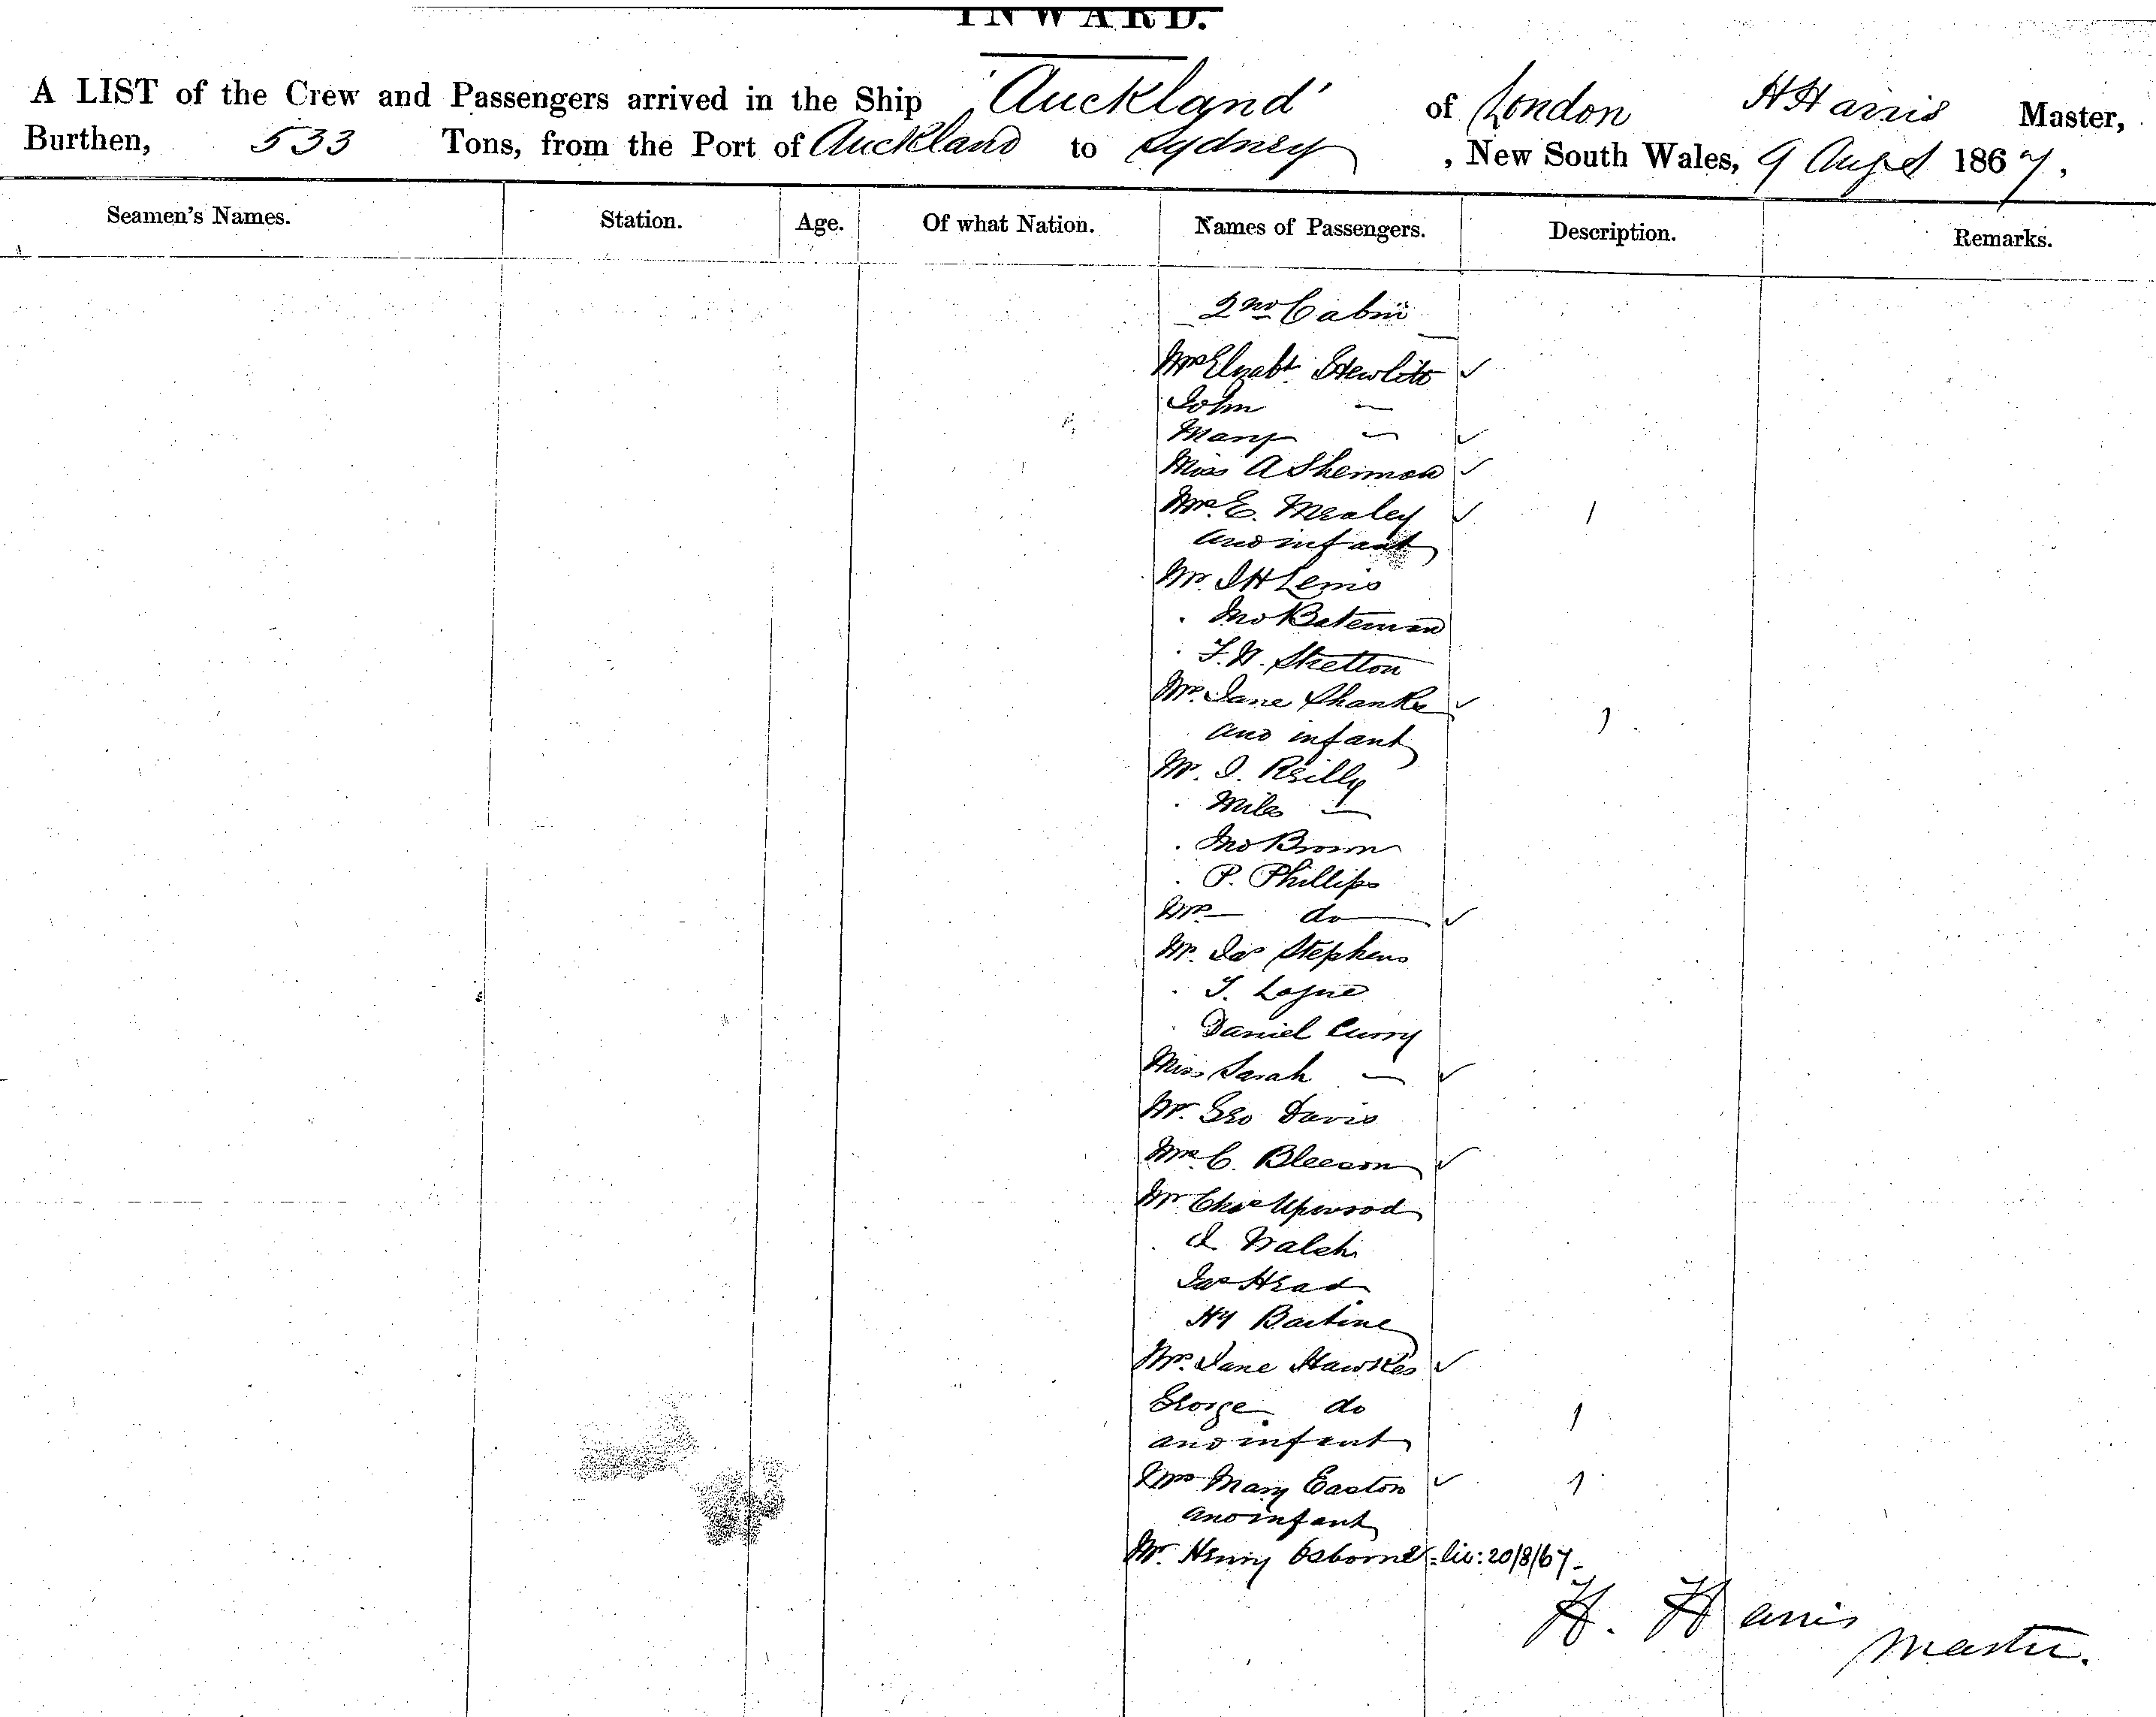 INWARD.
A LIST of the Crew and Passengers arrived in the Ship 'Auckland' of London H Harris Master,
Burthen, 533 Tons, from the Port of Auckland to Sydney, New South Wales, 9 Augst 1867,
Seamen's Names. Station. Age. Of what Nation. Names of Passengers. Description. Remarks.
2nd Cabin
Mrs Elizabt Hewlitt ✓
John —
Mary — ✓
Miss A Sherman ✓
Mrs E. Mealey ✓ 1
and infant
Mr. J H Lewis
. Jno Bateman
. F. W. Stretton
Mrs Jane Shanks ✓ 1
and infant
Mr. J. Reilly
. Miles —
. Jno Brown
. P. Phillips
Mrs — do — ✓
Mr. Jas Stephens
. T. Logue
. Daniel Curry
Miss Sarah — ✓
Mr. Geo Davis
Mrs C. Bleeson ✓
Mr Chas Upwood
. J. Walsh
Jas Head
Hy Bartine
Mrs Jane Hawkes ✓
George do 1
and infant
Mrs Mary Easton ✓ 1
and infant
Mr. Henry Osborne = liv: 20/8/67 -
H. Harris
Master.